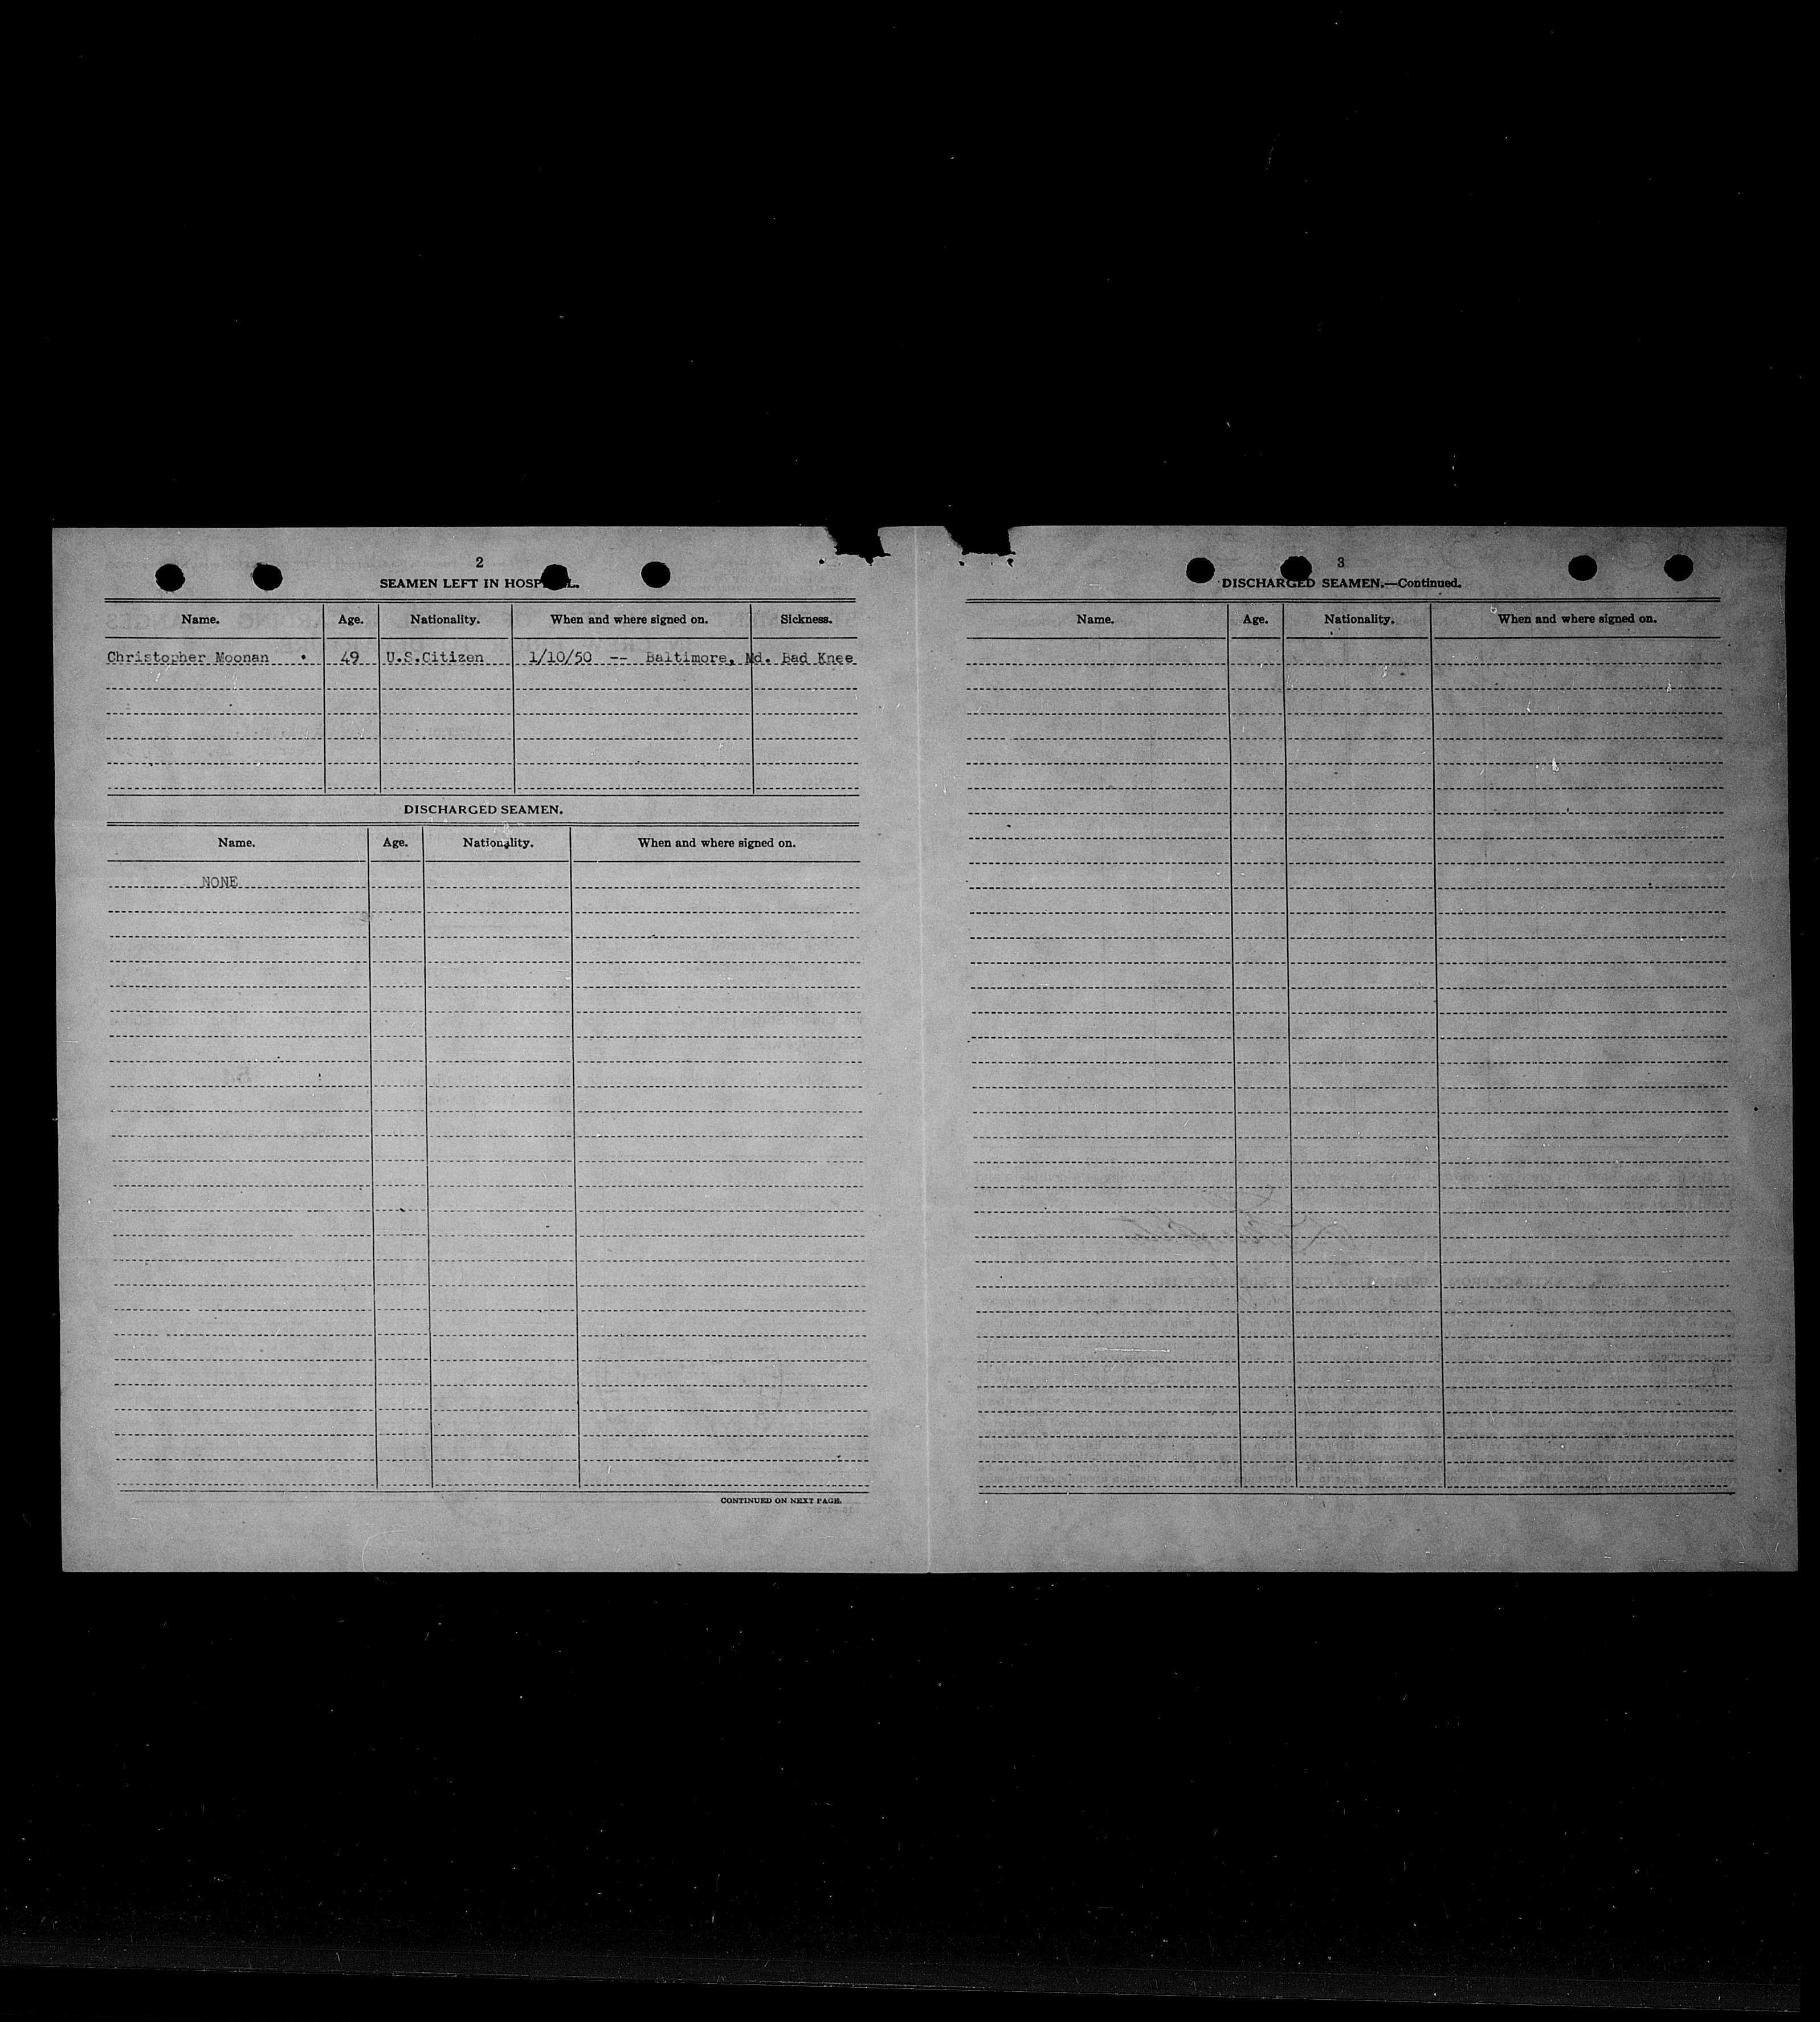 2
SEAMEN LEFT IN HOSPITAL.
Name. Age. Nationality. When and where signed on. Sickness.
Christopher Moonan 49 U.S.Citizen 1/10/50 -- Baltimore, Md. Bad Knee
DISCHARGED SEAMEN.
Name. Age. Nationality. When and where signed on.
NONE
CONTINUED ON NEXT PAGE.
3
DISCHARGED SEAMEN.—Continued.
Name. Age. Nationality. When and where signed on.